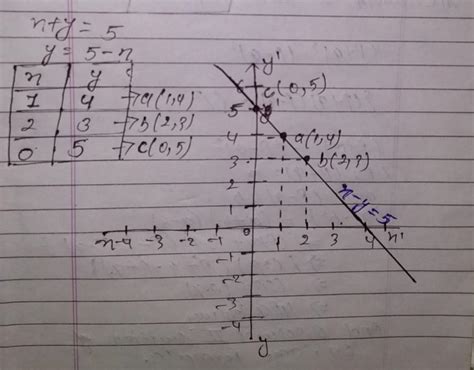 x+y = 5
y = 5-x
x y
1 4 → a(1,4)
2 3 → b(2,3)
0 5 → c(0,5)
y'
6 c(0,5)
5
4 a(1,4)
3 b(2,3)
2
1
x-y=5
x -4 -3 -2 -1 0 1 2 3 4 x'
-1
-2
-3
-4
y